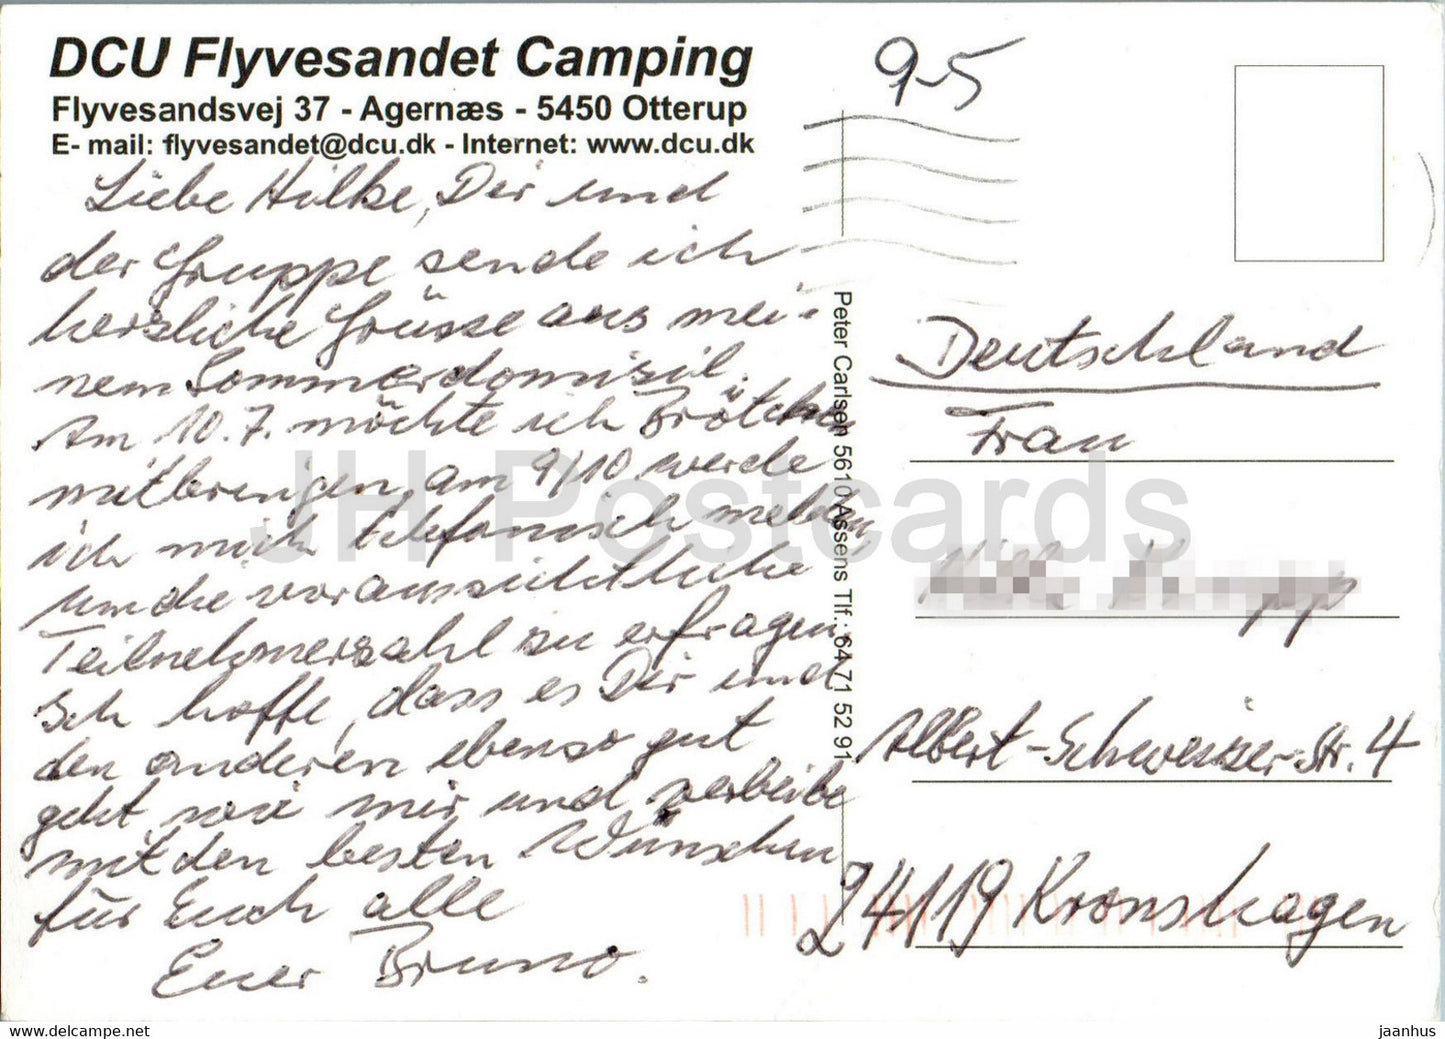 DCU Flyvesandet Camping
Flyvesandsvej 37 - Agernæs - 5450 Otterup
E- mail: flyvesandet@dcu.dk - Internet: www.dcu.dk
9-5
Liebe Hilke, Dir und
der Gruppe sende ich
herzliche Grüsse aus mei-
nem Sommerdomizil.
Am 10.7. möchte ich Brötchen
mitbringen, am 9/10 werde
ich mich telefonisch melden
um die voraussichtliche
Teilnehmerzahl zu erfragen.
Ich hoffe, dass es Dir und
den anderen ebenso gut
geht, wie mir und verbleibe
mit den besten Wünschen
für Euch alle
Euer Bruno.
Peter Carlsen 5610 Assens Tlf.: 64 71 52 91
Deutschland
Frau
Albert-Schweizer-Str. 4
24119 Kronshagen
JH Postcards
https://www.delcampe.net
jaanhus